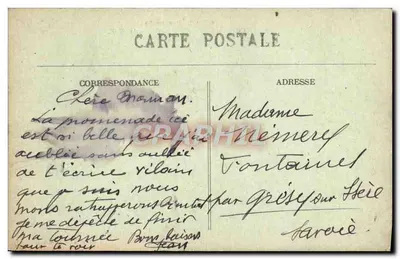 CARTE POSTALE
CORRESPONDANCE
ADRESSE
Chère Maman.
La promenade ici
est si belle que j'ai
oublié
de t'écrire vilain
que je suis nous
nous rattraperons
je me dépêche de finir
ma tournée Bons baisers
pour te voir Jean
Madame
Némerel
Fontaines
par Grésy sur Isère
Savoie.